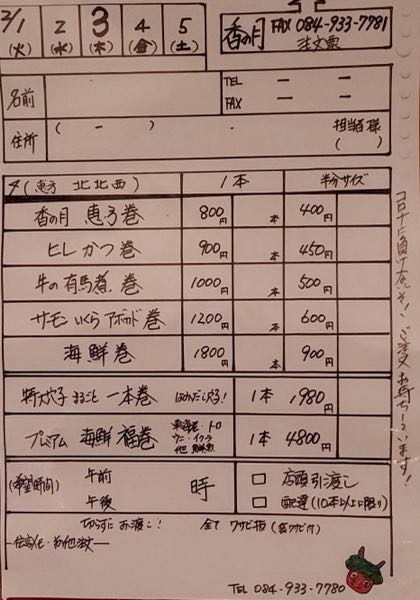 2/1 (火) 2 (水) 3 (木) 4 (金) 5 (土)
香の月 FAX 084-933-7781
注文票
名前
TEL — —
FAX — —
住所 ( - ) 担当者様 ( )
(恵方 北北西) 1本 半分サイズ
香の月 恵方巻 800円 本 400円
ヒレかつ 巻 900円 本 450円
牛の有馬煮 巻 1000円 本 500円
サーモン いくら アボカド 巻 1200円 本 600円
海鮮巻 1800円 本 900円
特大穴子 まるごと 一本巻 はみだし穴子! 1本 1980円
プレミアム 海鮮 福巻 車海老・トロ ウニ・イクラ 他 1本 4800円
(希望時間) 午前 午後 時
□ 店頭引渡し
□ 配達 (10本以上に限り)
切らずに お渡し! 全て ワサビ抜 (袋ワサビ付)
TEL 084-933-7780
コロナに負けないぞ! ご注文お待ちしています!